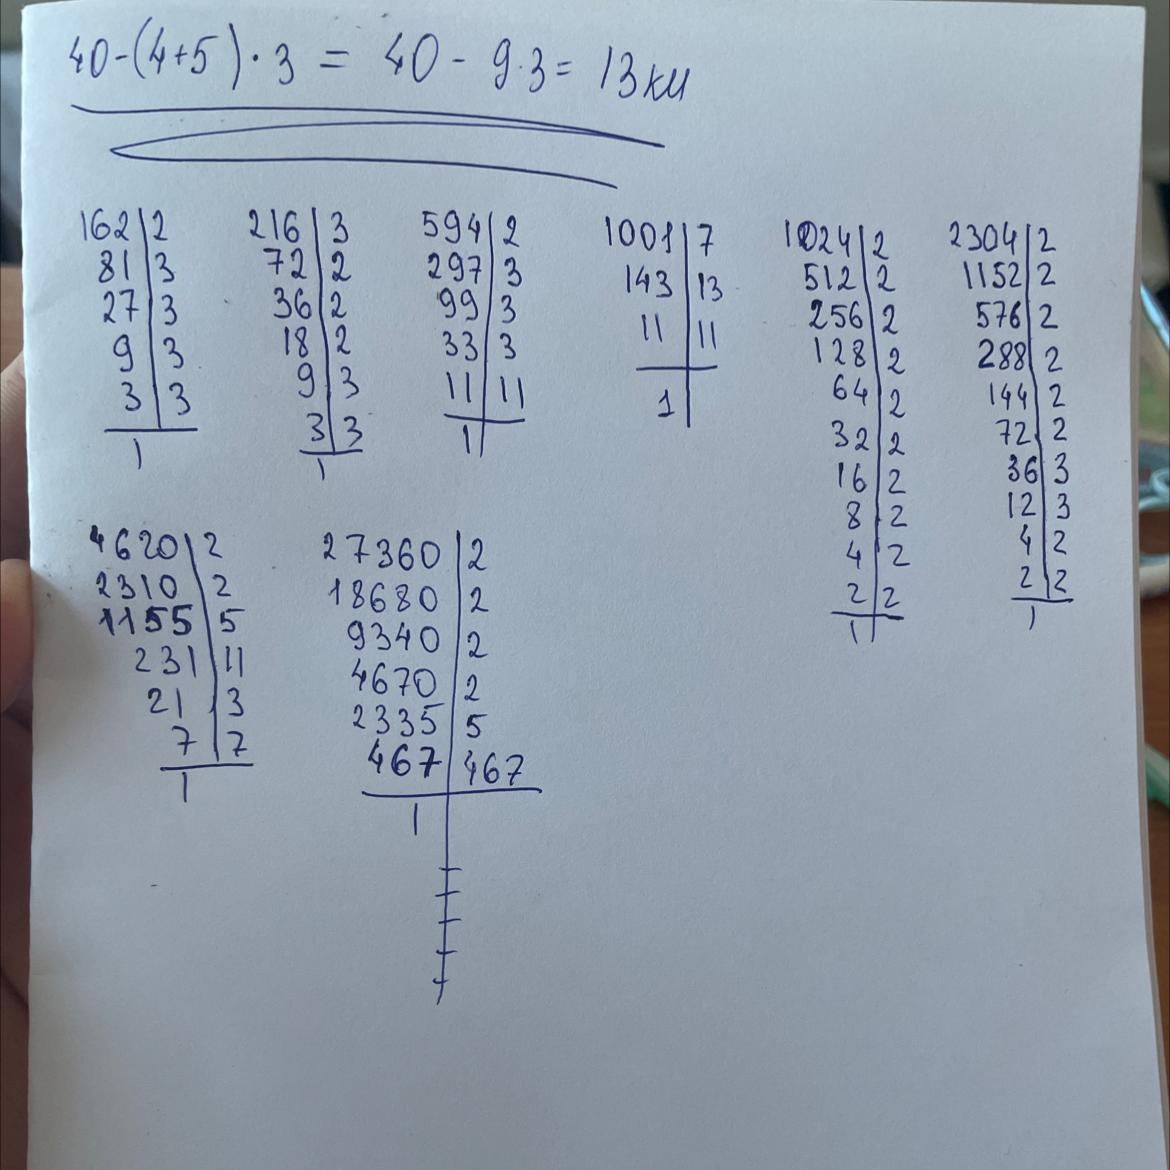 40-(4+5)·3 = 40 - 9·3 = 13 км
162|2
81|3
27|3
9|3
3|3
1
216|3
72|2
36|2
18|2
9|3
3|3
1
594|2
297|3
99|3
33|3
11|11
1
1001|7
143|13
11|11
1
1024|2
512|2
256|2
128|2
64|2
32|2
16|2
8|2
4|2
2|2
1
2304|2
1152|2
576|2
288|2
144|2
72|2
36|3
12|3
4|2
2|2
1
4620|2
2310|2
1155|5
231|11
21|3
7|7
1
27360|2
18680|2
9340|2
4670|2
2335|5
467|467
1